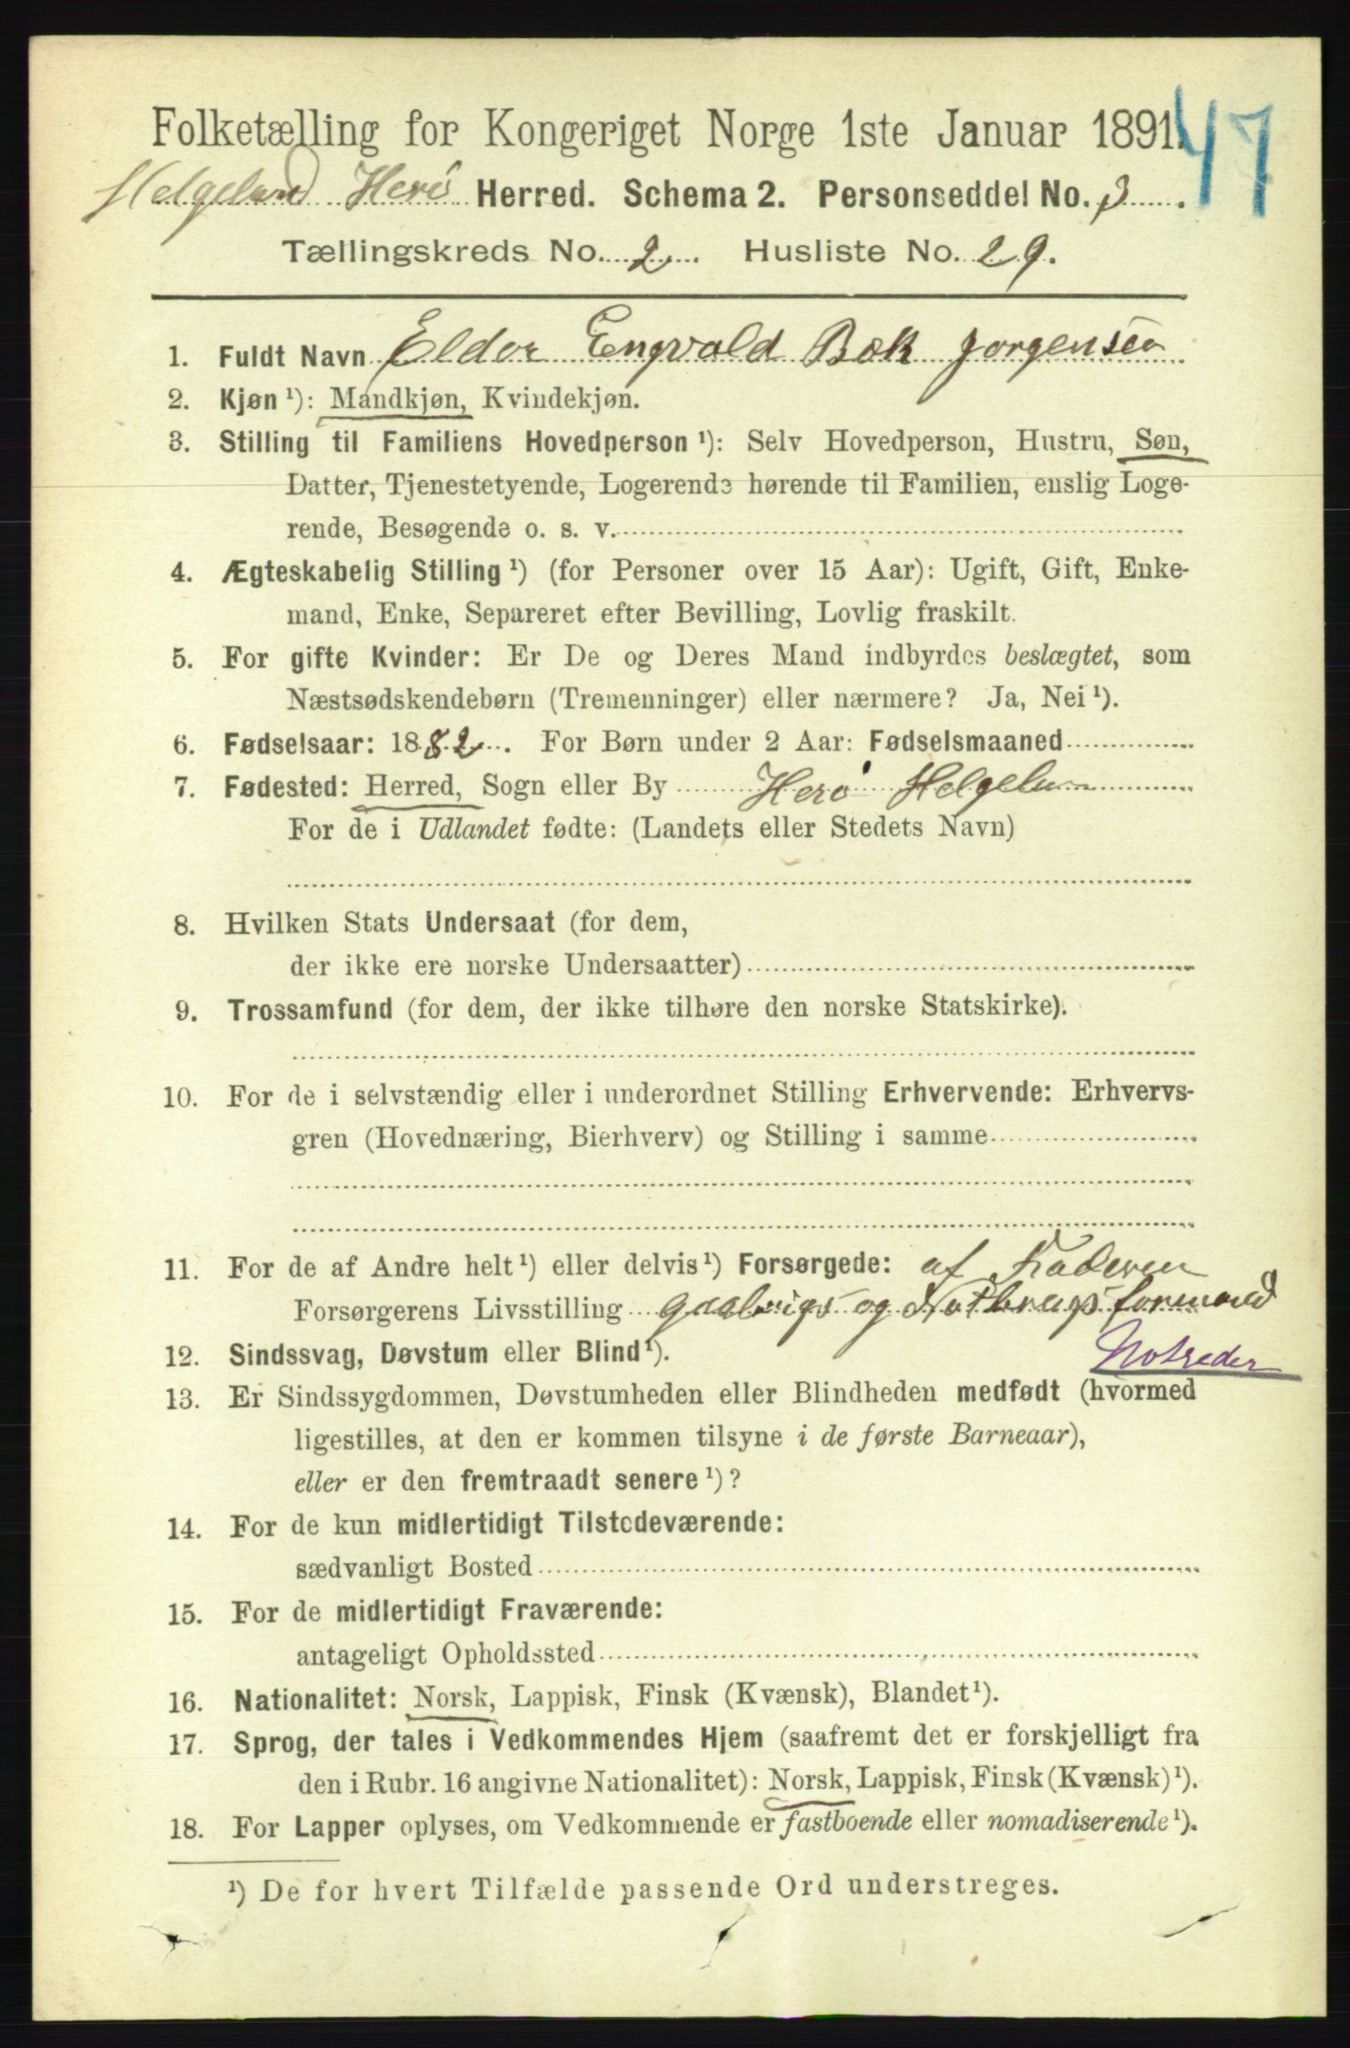 Folketælling for Kongeriget Norge 1ste Januar 1891.
47
Helgeland Herö Herred. Schema 2. Personseddel No. 3.
Tællingskreds No. 2. Husliste No. 29.
1. Fuldt Navn Eldor Engvald Bæk Jørgensen
2. Kjøn ¹): Mandkjøn, Kvindekjøn.
3. Stilling til Familiens Hovedperson ¹): Selv Hovedperson, Hustru, Søn,
Datter, Tjenestetyende, Logerende hørende til Familien, enslig Loge-
rende, Besøgende o. s. v.
4. Ægteskabelig Stilling ¹) (for Personer over 15 Aar): Ugift, Gift, Enke-
mand, Enke, Separeret efter Bevilling, Lovlig fraskilt.
5. For gifte Kvinder: Er De og Deres Mand indbyrdes beslægtet, som
Næstsødskendebørn (Tremenninger) eller nærmere? Ja, Nei ¹).
6. Fødselsaar: 1882. For Børn under 2 Aar: Fødselsmaaned
7. Fødested: Herred, Sogn eller By Herö Helgeln
For de i Udlandet fødte: (Landets eller Stedets Navn)
8. Hvilken Stats Undersaat (for dem,
der ikke ere norske Undersaatter)
9. Trossamfund (for dem, der ikke tilhøre den norske Statskirke).
10. For de i selvstændig eller i underordnet Stilling Erhvervende: Erhvervs-
gren (Hovednæring, Bierhverv) og Stilling i samme
11. For de af Andre helt ¹) eller delvis ¹) Forsørgede: af Faderen
Forsørgerens Livsstilling og Notbrugsformand
12. Sindssvag, Døvstum eller Blind ¹). Notreder
13. Er Sindssygdommen, Døvstumheden eller Blindheden medfødt (hvormed
ligestilles, at den er kommen tilsyne i de første Barneaar),
eller er den fremtraadt senere ¹)?
14. For de kun midlertidigt Tilstedeværende:
sædvanligt Bosted
15. For de midlertidigt Fraværende:
antageligt Opholdssted
16. Nationalitet: Norsk, Lappisk, Finsk (Kvænsk), Blandet ¹).
17. Sprog, der tales i Vedkommendes Hjem (saafremt det er forskjelligt fra
den i Rubr. 16 angivne Nationalitet): Norsk, Lappisk, Finsk (Kvænsk) ¹).
18. For Lapper oplyses, om Vedkommende er fastboende eller nomadiserende ¹).
¹) De for hvert Tilfælde passende Ord understreges.